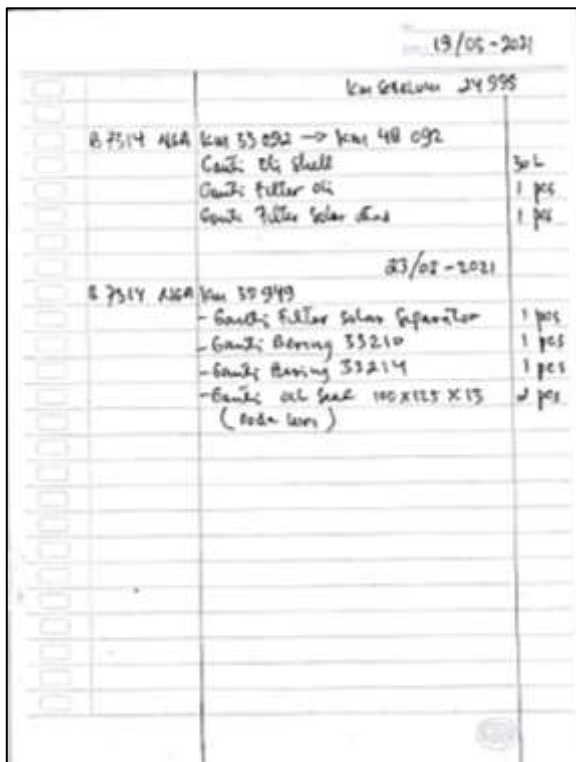 19/05-2021
Km Sebelum 24995
B 7514 NGA Km 33 092 → Km 48 092
Ganti Oli Shell 30 L
Ganti Filter Oli 1 pcs
Ganti Filter Solar 1 pcs
23/05-2021
B 7514 NGA Km 35949
- Ganti Filter Solar Separator 1 pcs
- Ganti Bering 33210 1 pcs
- Ganti Bering 33214 1 pcs
- Ganti Oil Seal 100 x 125 x 13 2 pcs
( Roda )